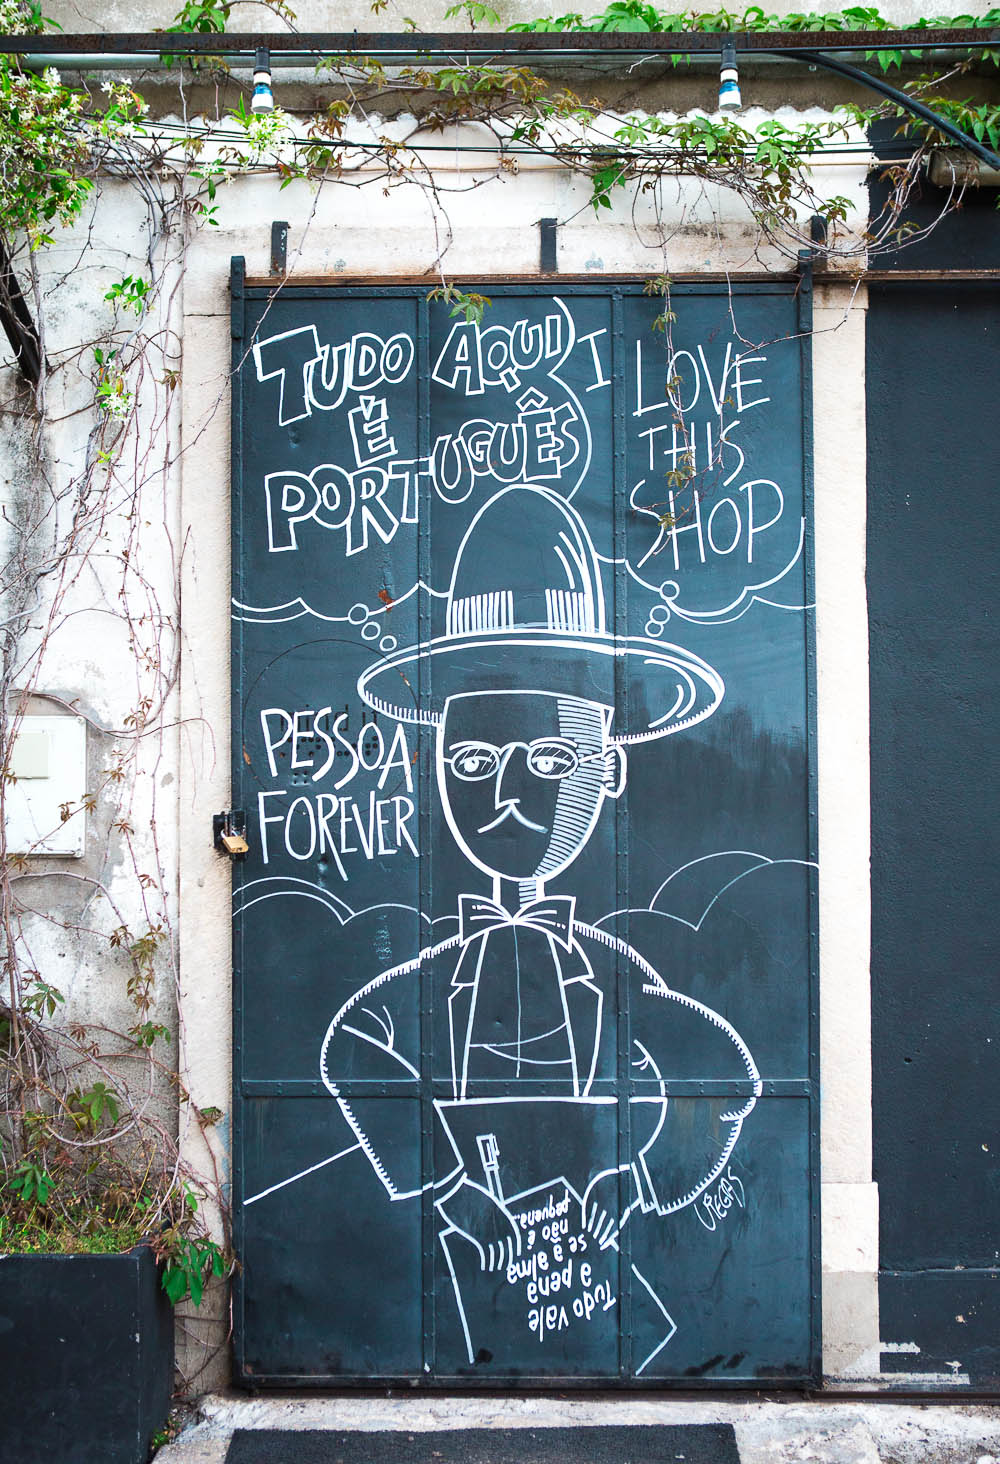 TUDO AQUI
É
PORTUGUÊS
I LOVE
THIS
SHOP
PESSOA
FOREVER
Tudo vale
a pena
se a alma
não é
pequena...